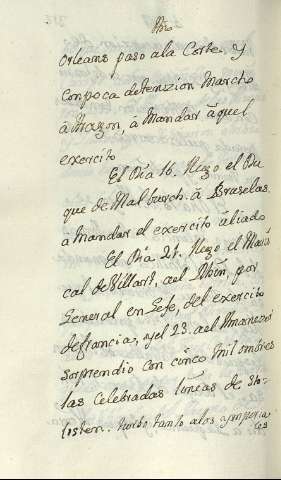 Orleans paso ala Corte, y
con poca detenzion Marcho
â Mazon, â Mandar âquel
exercito
El Dia 16. llego el Du
que de Malburch. â Braselas.
â mandar el exercito âliado
El Dia 21. llego el Maris
cal de Villart, ael Rhin, por
General en Gefe, del exercito
de francia, y el 23. ael
sorprendio con cinco mil ombres
las celebradas lineas de Sto
listen. tanto alos ymperia
les